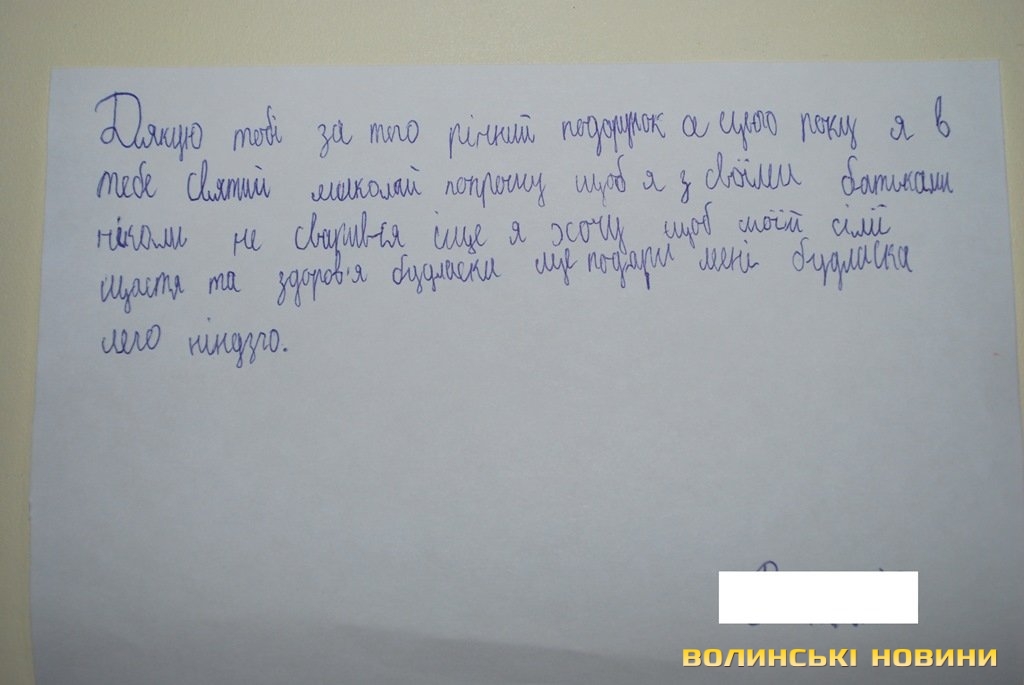 Дякую тобі за того річний подарунок а цього року я в
тебе святий миколай попрошу щоб я з своїми батьками
ніколи не сварився іще я хочу щоб моїй сімії
щастя та здоров'я будласка ще подари мені будласка
лего ніндзго.
ВОЛИНСЬКІ НОВИНИ